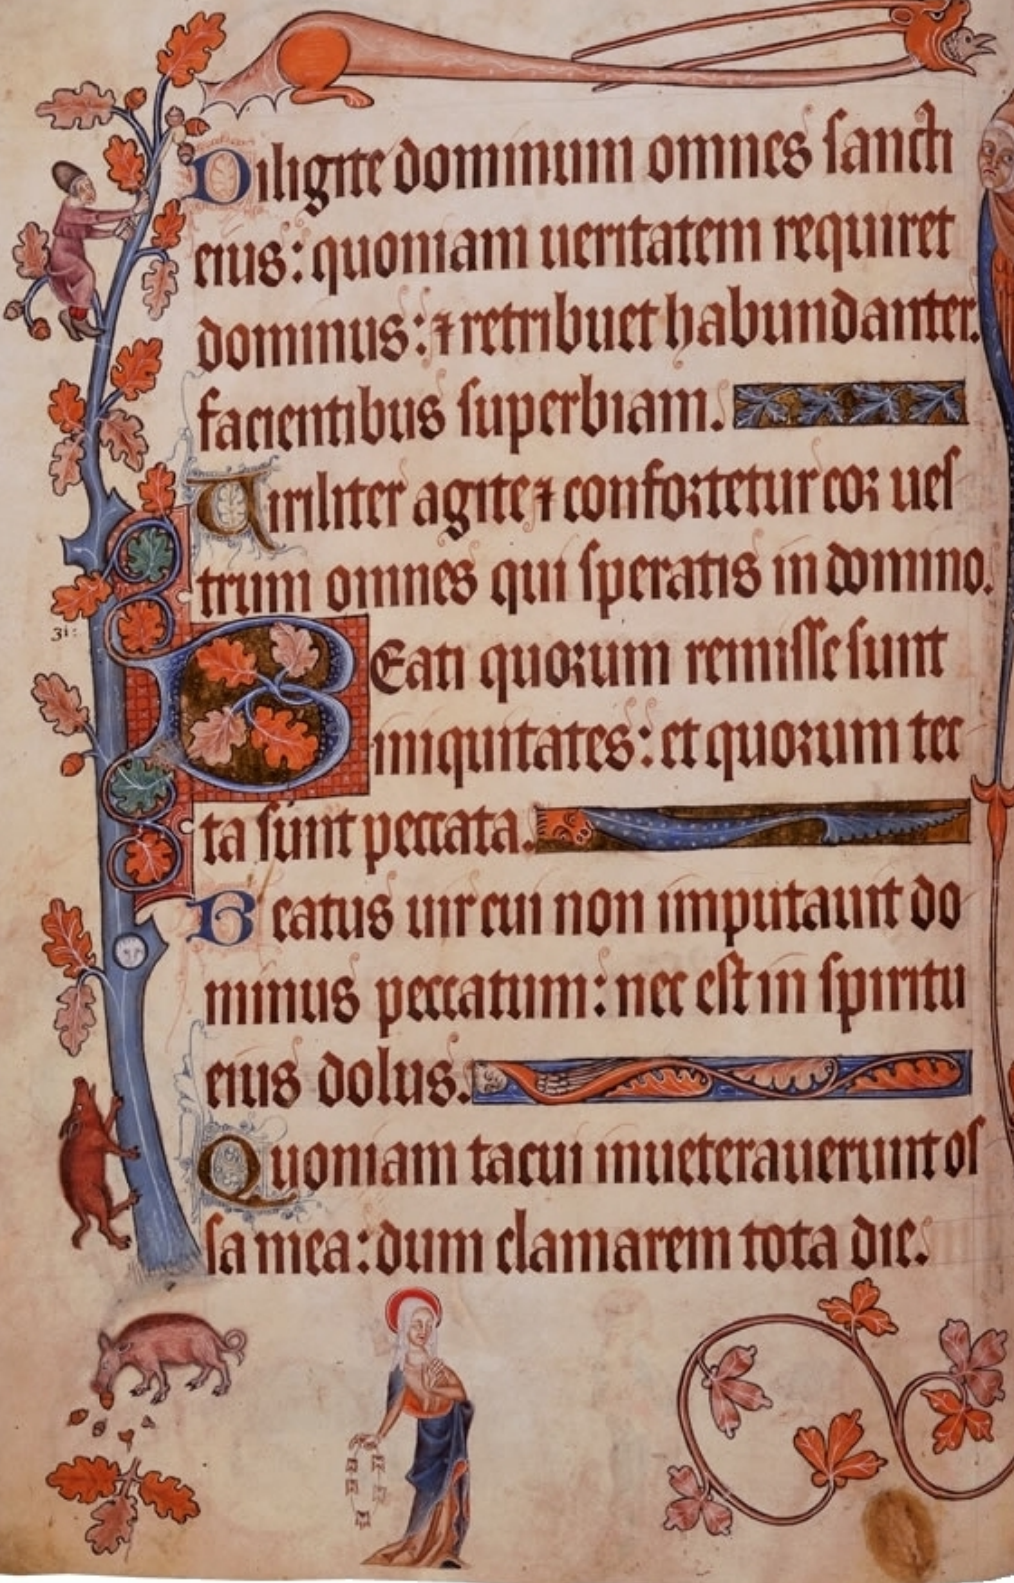 Diligite dominum omnes sancti
eius: quoniam ueritatem requiret
dominus: ⁊ retribuet habundanter.
facientibus superbiam.
Uiriliter agite ⁊ confortetur cor ues
trum omnes qui speratis in domino.
31:
BEati quorum remisse sunt
iniquitates: et quorum tec
ta sunt peccata.
Beatus uir cui non imputauit do
minus peccatum: nec est in spiritu
eius dolus.
Quoniam tacui inueterauerunt os
sa mea: dum clamarem tota die.